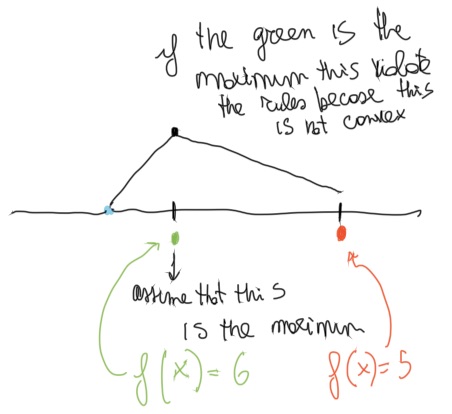 if the green is the
maximum this violate
the rules becose this
is not convex
assume that this
is the maximum
f(x)=6
f(x)=5